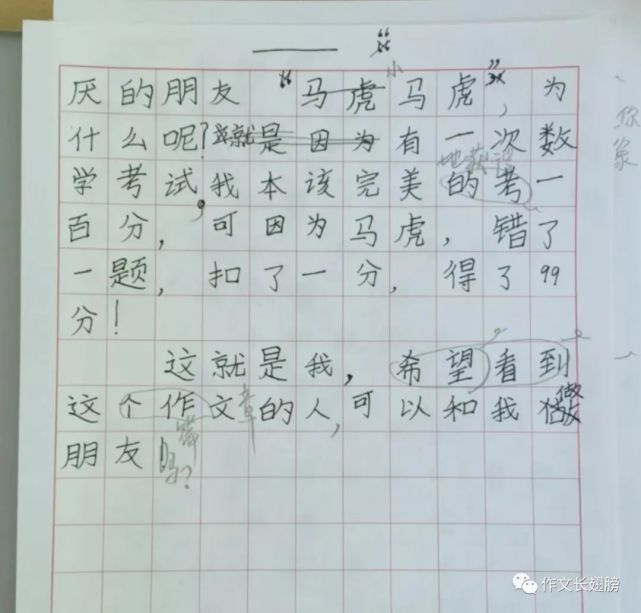 厌的朋友“马虎小马虎”,为
什么呢?就是因为有一次数
学考试,我本该完美的考一
百分,可因为马虎,错了
一题,扣了一分,得了99
分!
这就是我,希望看到
这个作文章的人,可以和我做
朋友吗?
你
象
作文长翅膀